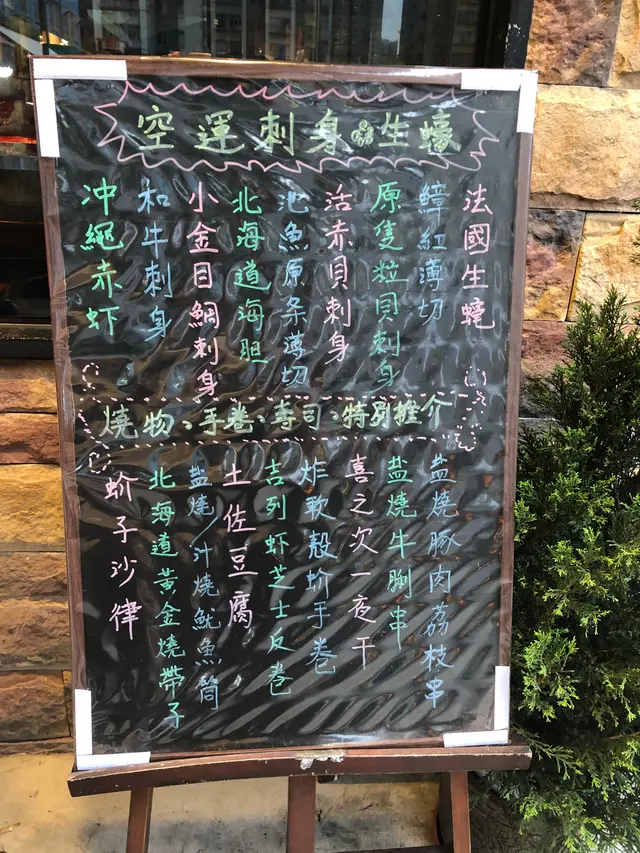 空運刺身生蠔
法國生蠔
鱆紅薄切
原隻粒貝刺身
活赤貝刺身
池魚原条薄切
北海道海胆
小金目鯛刺身
和牛刺身
冲繩赤虾
燒物、手卷、寿司、特別推介
盐燒豚肉荔枝串
盐燒牛脷串
喜之次一夜干
炸軟殼蚧手卷
吉列虾芝士反卷
土佐豆腐
盐燒/汁燒魷魚筒
北海道黃金燒帶子
蚧子沙律